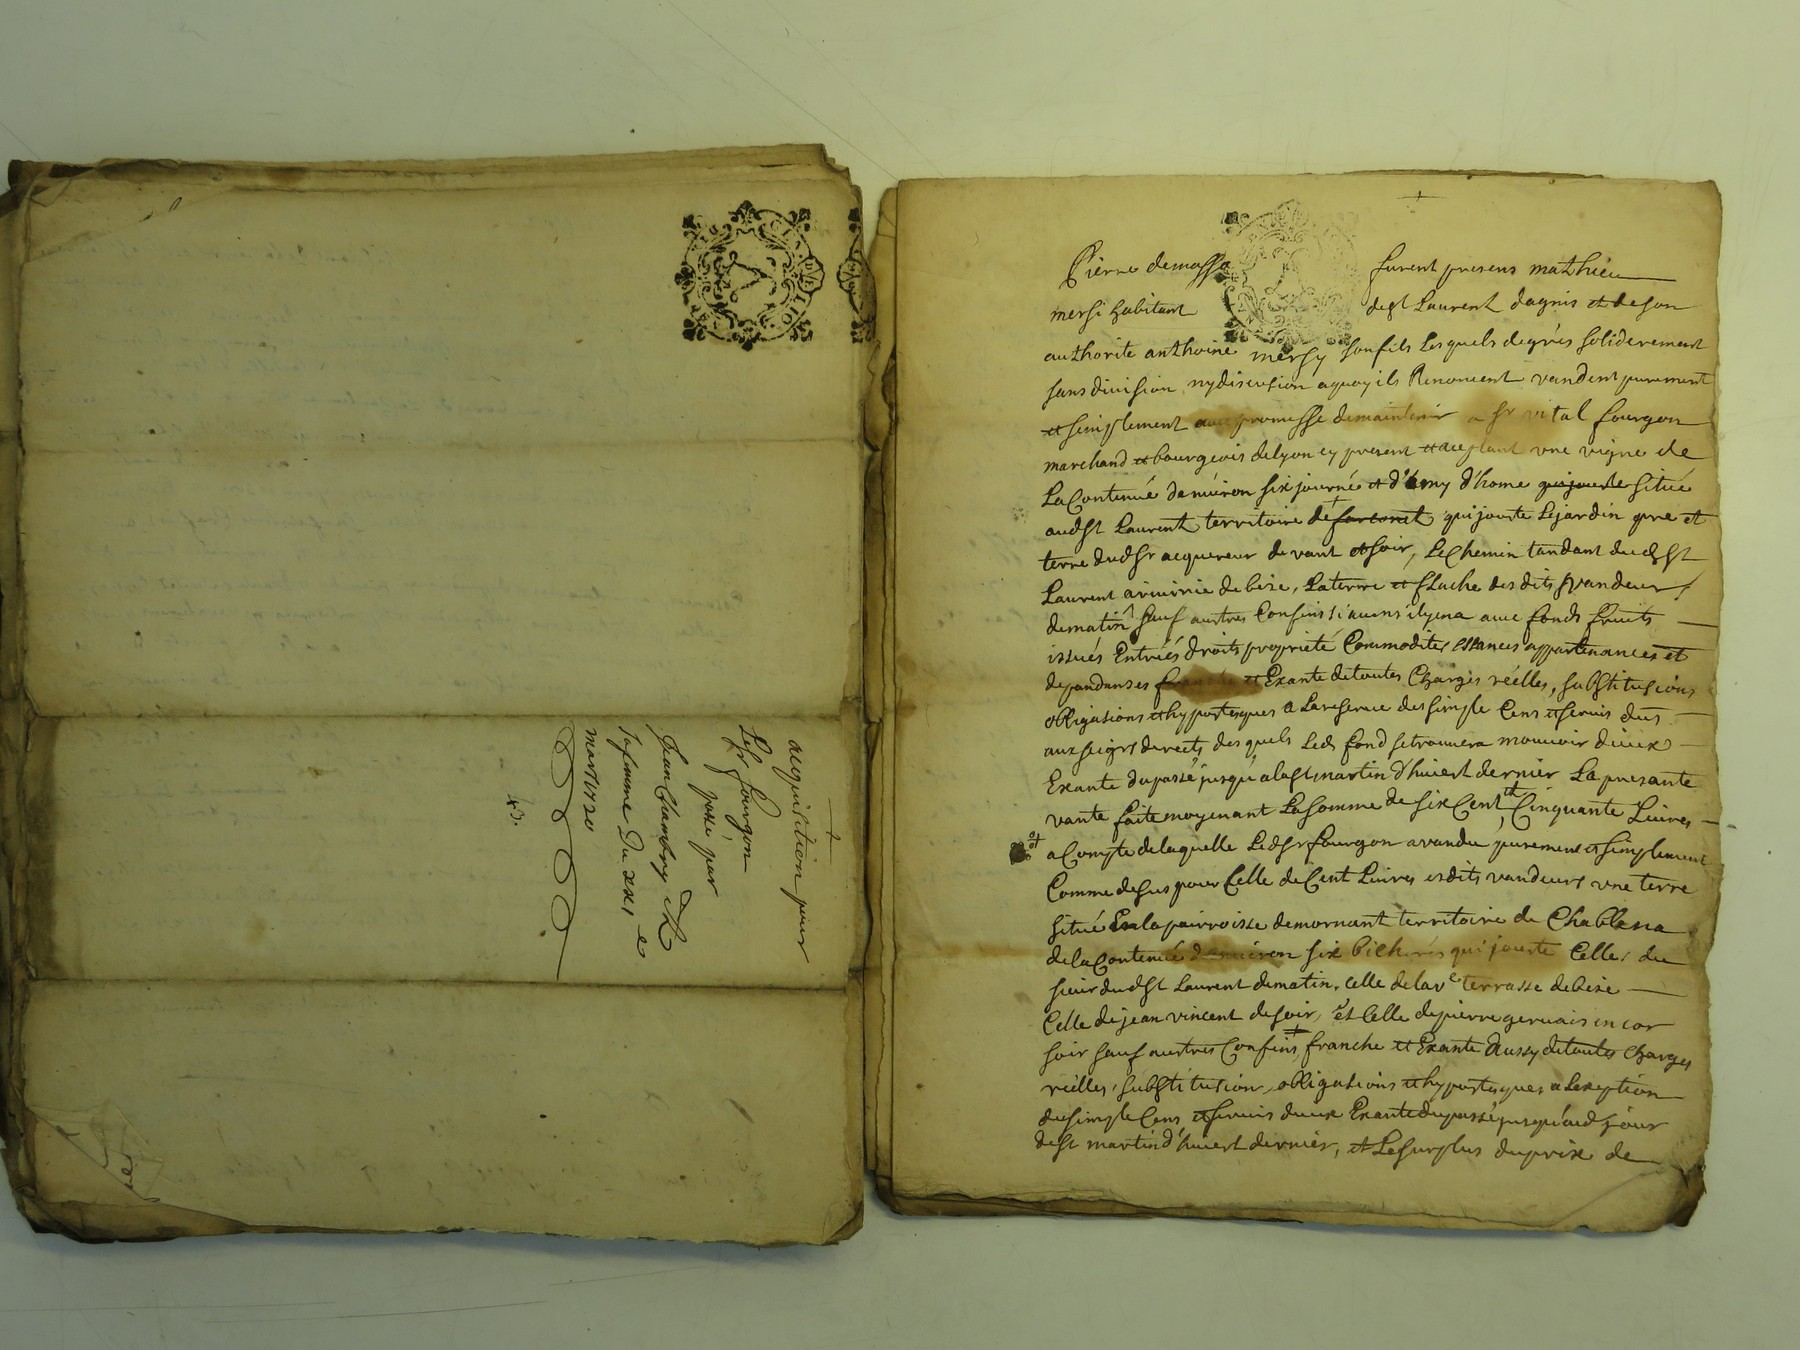 acquisition pour
Le Sr fourgon
passé par
Jean Chambry &
sa femme Du xxi e
mars 1720
43.
Pierre demassa furent presens mathieu
mersi habitant de st Laurent dagnis et de son
authorite anthoine mersy son fils Lesquels de grés soliderement
sans division ny discusion a quoy ils Renoncent vandent purement
et simplement avec promesse de maintenir a Sr vital fourgon
marchand et bourgeois de lyon cy present et aceptant une vigne de
La Contenue denuiron six journée et d'emy d'home qui jouste située
audst Laurent territoire de qui jouste Le jardin pre et
terre dudsr acquereur de vant et soir, Le Chemin tandant dudst
Laurent a riuirie de bize, La terre et flache desdits vandeurs
de matin sauf austres Confins si aucuns il y en a avec fonds fruits
issués Entrées droits proprieté Commodites essances appartenances et
depandanses franche et Exante de toutes Charges réelles, substitusions
obligasions et hypotesques a La reserue du simple Cens et seruis dus
aux seigrs directs des quels Led fond se trouuera mouuoir d'iceux
Exante du passé jusqu'a la st martin d'hiuert dernier La presante
vante faite moyenant La somme de six Cent Cinquante Liures
a Compte de laquelle Ledsr fourgon a vandu purement et simplement
Comme desus pour Celle de Cent Liures esdits vandeurs une terre
situé En la parroisse de mornant territoire de Chablena
de la Contenue denuiron six bicherés qui jouste Celle du
sieur dudst Laurent de matin, Celle de la ve terrasse de bize
Celle de jean vincent de soir, et Celle de pierre geruais encor
soir sauf austres Confins franche et Exante Aussy de toutes Charges
réelles, substitusion, obligasions et hypotesques a Lexeption
du simple Cens et seruis d'iceux Exante du passé jusqu'aud jour
de st martin d'hiuert dernier, et Le surplus du prix de